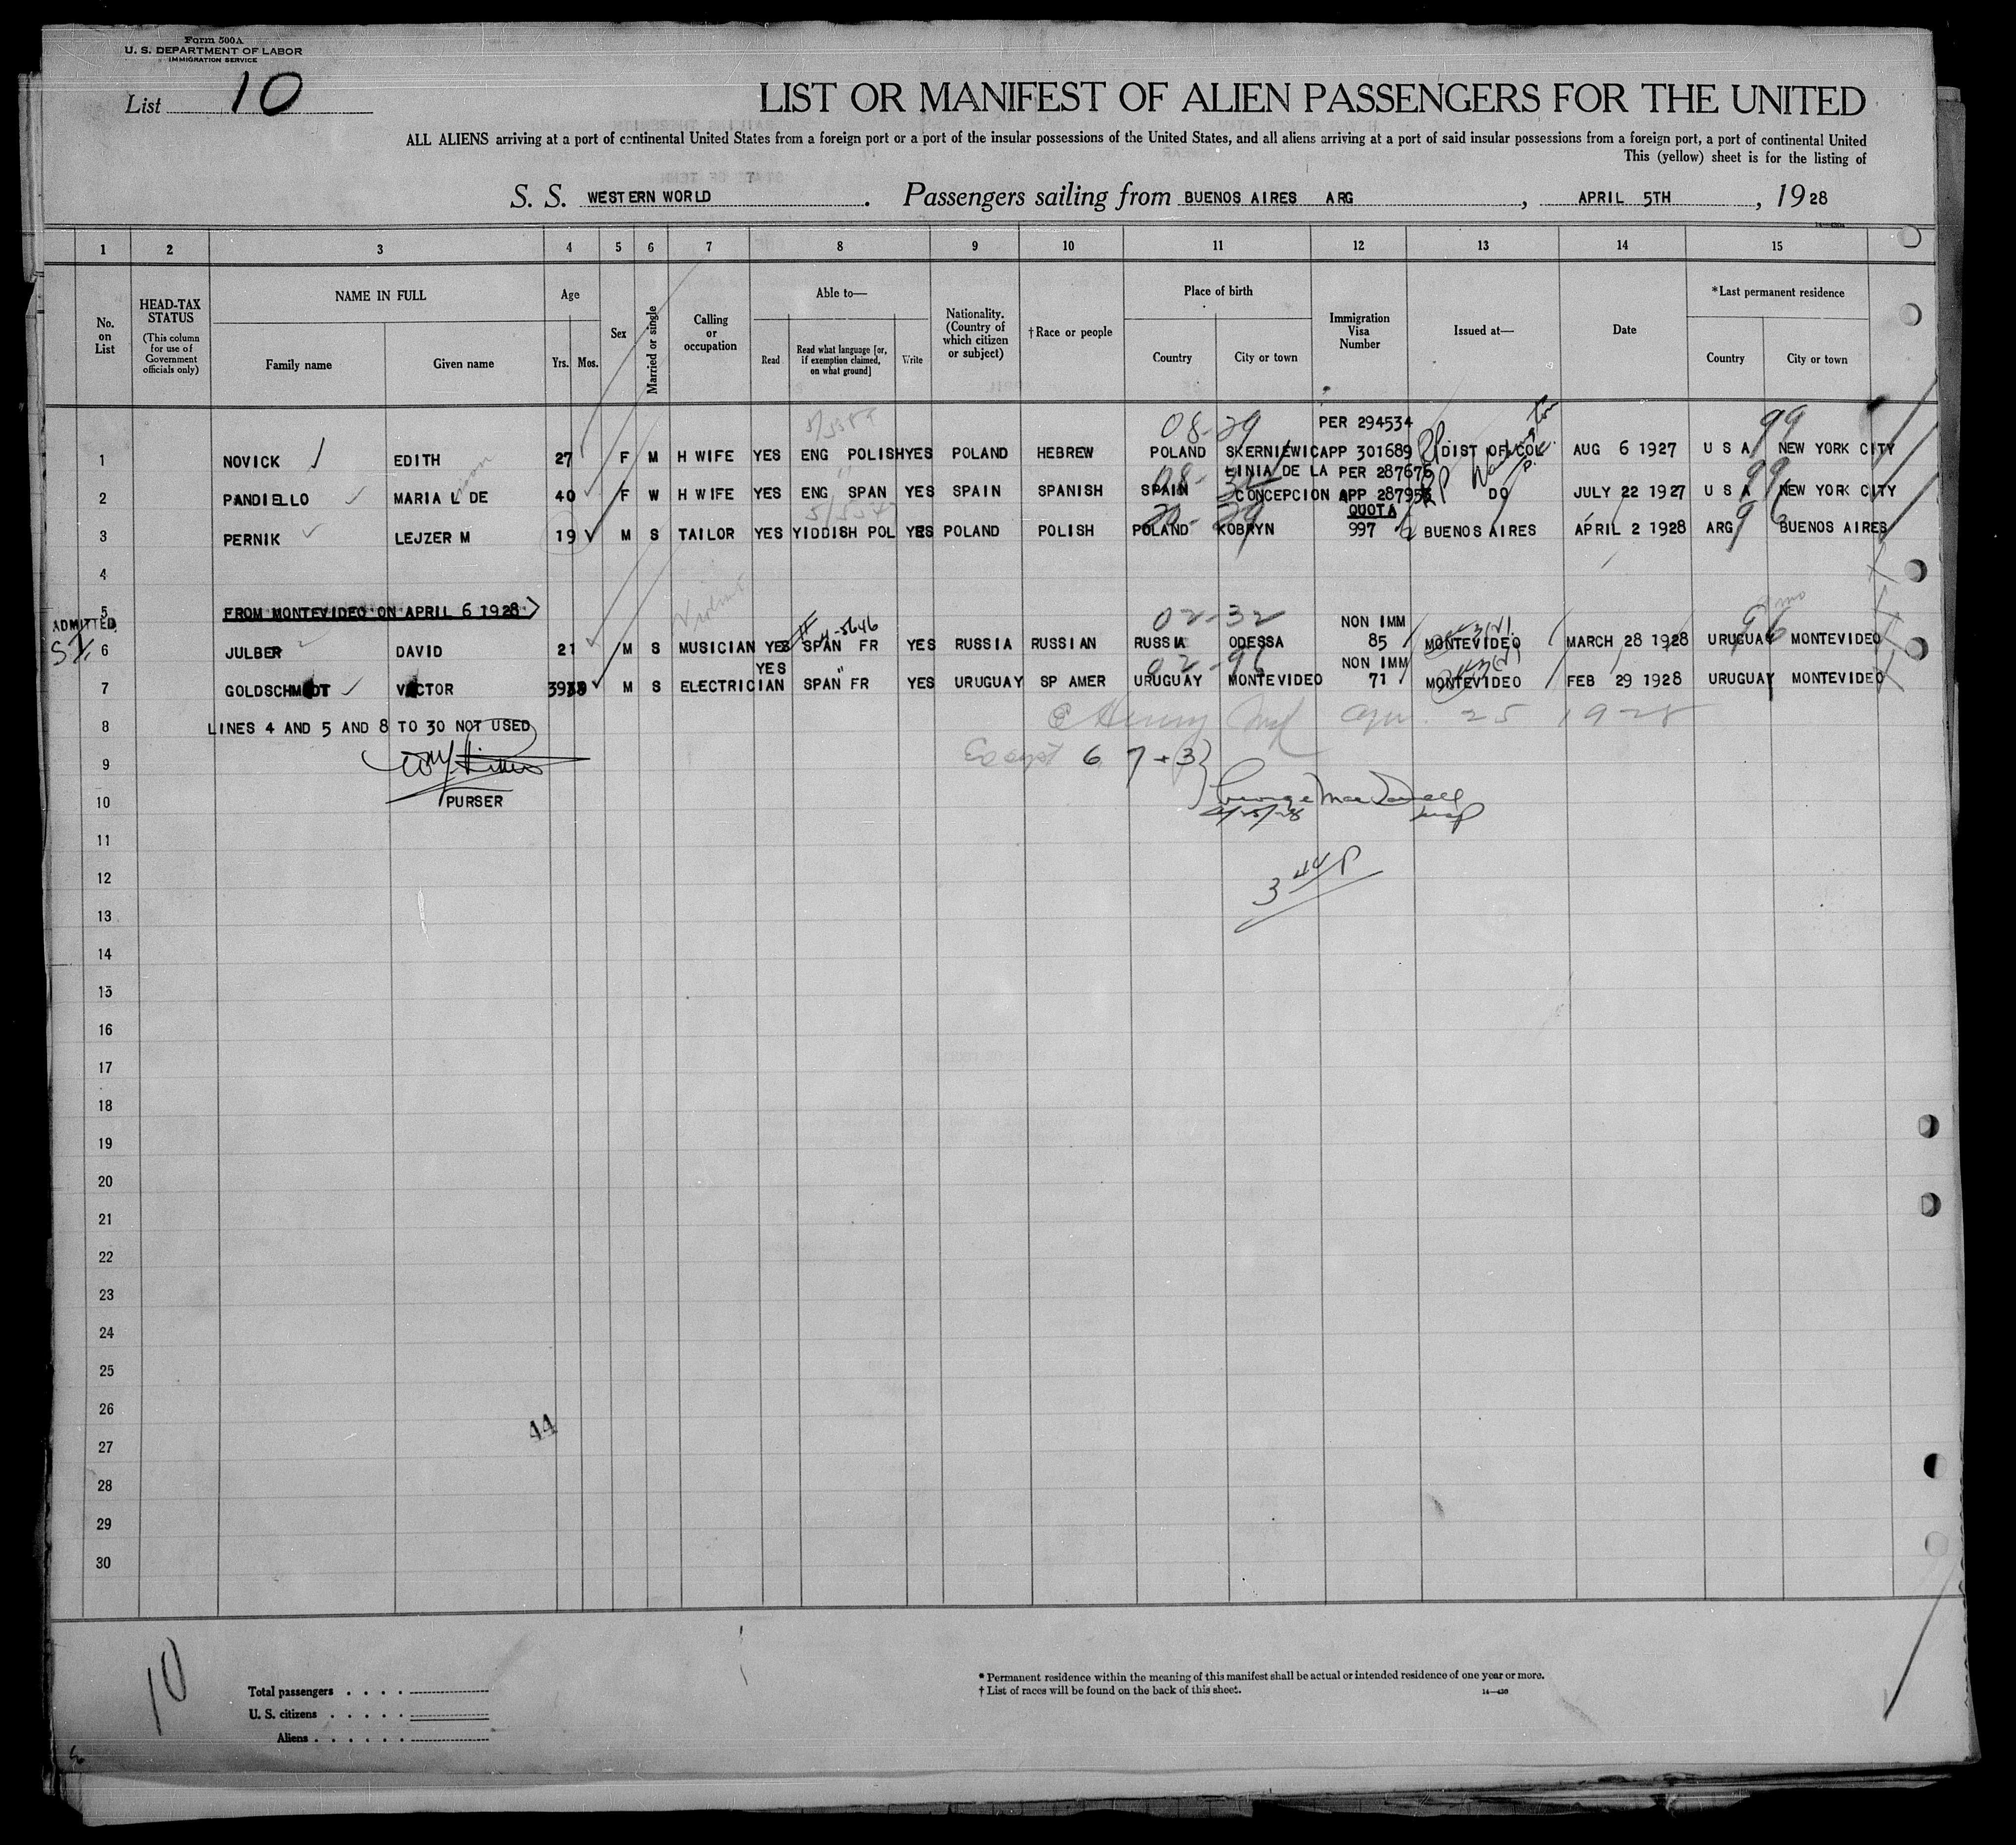 Form 500A
U. S. DEPARTMENT OF LABOR
IMMIGRATION SERVICE
List 10
LIST OR MANIFEST OF ALIEN PASSENGERS FOR THE UNITED
ALL ALIENS arriving at a port of continental United States from a foreign port or a port of the insular possessions of the United States, and all aliens arriving at a port of said insular possessions from a foreign port, a port of continental United
This (yellow) sheet is for the listing of
S. S. WESTERN WORLD. Passengers sailing from BUENOS AIRES ARG, APRIL 5TH, 1928
1 2 3 4 5 6 7 8 9 10 11 12 13 14 15
No. on List
HEAD-TAX STATUS (This column for use of Government officials only)
NAME IN FULL
Family name Given name
Age
Yrs. Mos.
Sex
Married or single
Calling or occupation
Able to—
Read
Read what language [or, if exemption claimed, on what ground]
Write
Nationality. (Country of which citizen or subject)
†Race or people
Place of birth
Country City or town
Immigration Visa Number
Issued at—
Date
*Last permanent residence
Country City or town
08-29 PER 294534 99
1 NOVICK EDITH 27 F M H WIFE YES ENG POLISH YES POLAND HEBREW POLAND SKERNIEWIC APP 301689 DIST OF COL AUG 6 1927 U S A NEW YORK CITY
LINIA DE LA PER 287676 99
2 PANDIELLO MARIA L DE 40 F W H WIFE YES ENG SPAN YES SPAIN SPANISH SPAIN CONCEPCION APP 287953 DO JULY 22 1927 U S A NEW YORK CITY
QUOTA
3 PERNIK LEJZER M 19 M S TAILOR YES YIDDISH POL YES POLAND POLISH POLAND KOBRYN 997 BUENOS AIRES APRIL 2 1928 ARG BUENOS AIRES
4
5 FROM MONTEVIDEO ON APRIL 6 1928
ADMITTED 02-32 NON IMM
6 JULBER DAVID 21 M S MUSICIAN YES SPAN FR YES RUSSIA RUSSIAN RUSSIA ODESSA 85 MONTEVIDEO MARCH 28 1928 URUGUAY MONTEVIDEO
YES 02-96 NON IMM
7 GOLDSCHMIDT VICTOR 39 M S ELECTRICIAN SPAN FR YES URUGUAY SP AMER URUGUAY MONTEVIDEO 71 MONTEVIDEO FEB 29 1928 URUGUAY MONTEVIDEO
8 LINES 4 AND 5 AND 8 TO 30 NOT USED
Henry Apr. 25 1928
9 Except 6 7 + 3
10 PURSER
George
4/25/28 Insp
11
12
13
14
15
16
17
18
19
20
21
22
23
24
25
26
44
27
28
29
30
10
Total passengers
U. S. citizens
Aliens
* Permanent residence within the meaning of this manifest shall be actual or intended residence of one year or more.
† List of races will be found on the back of this sheet.
14—430